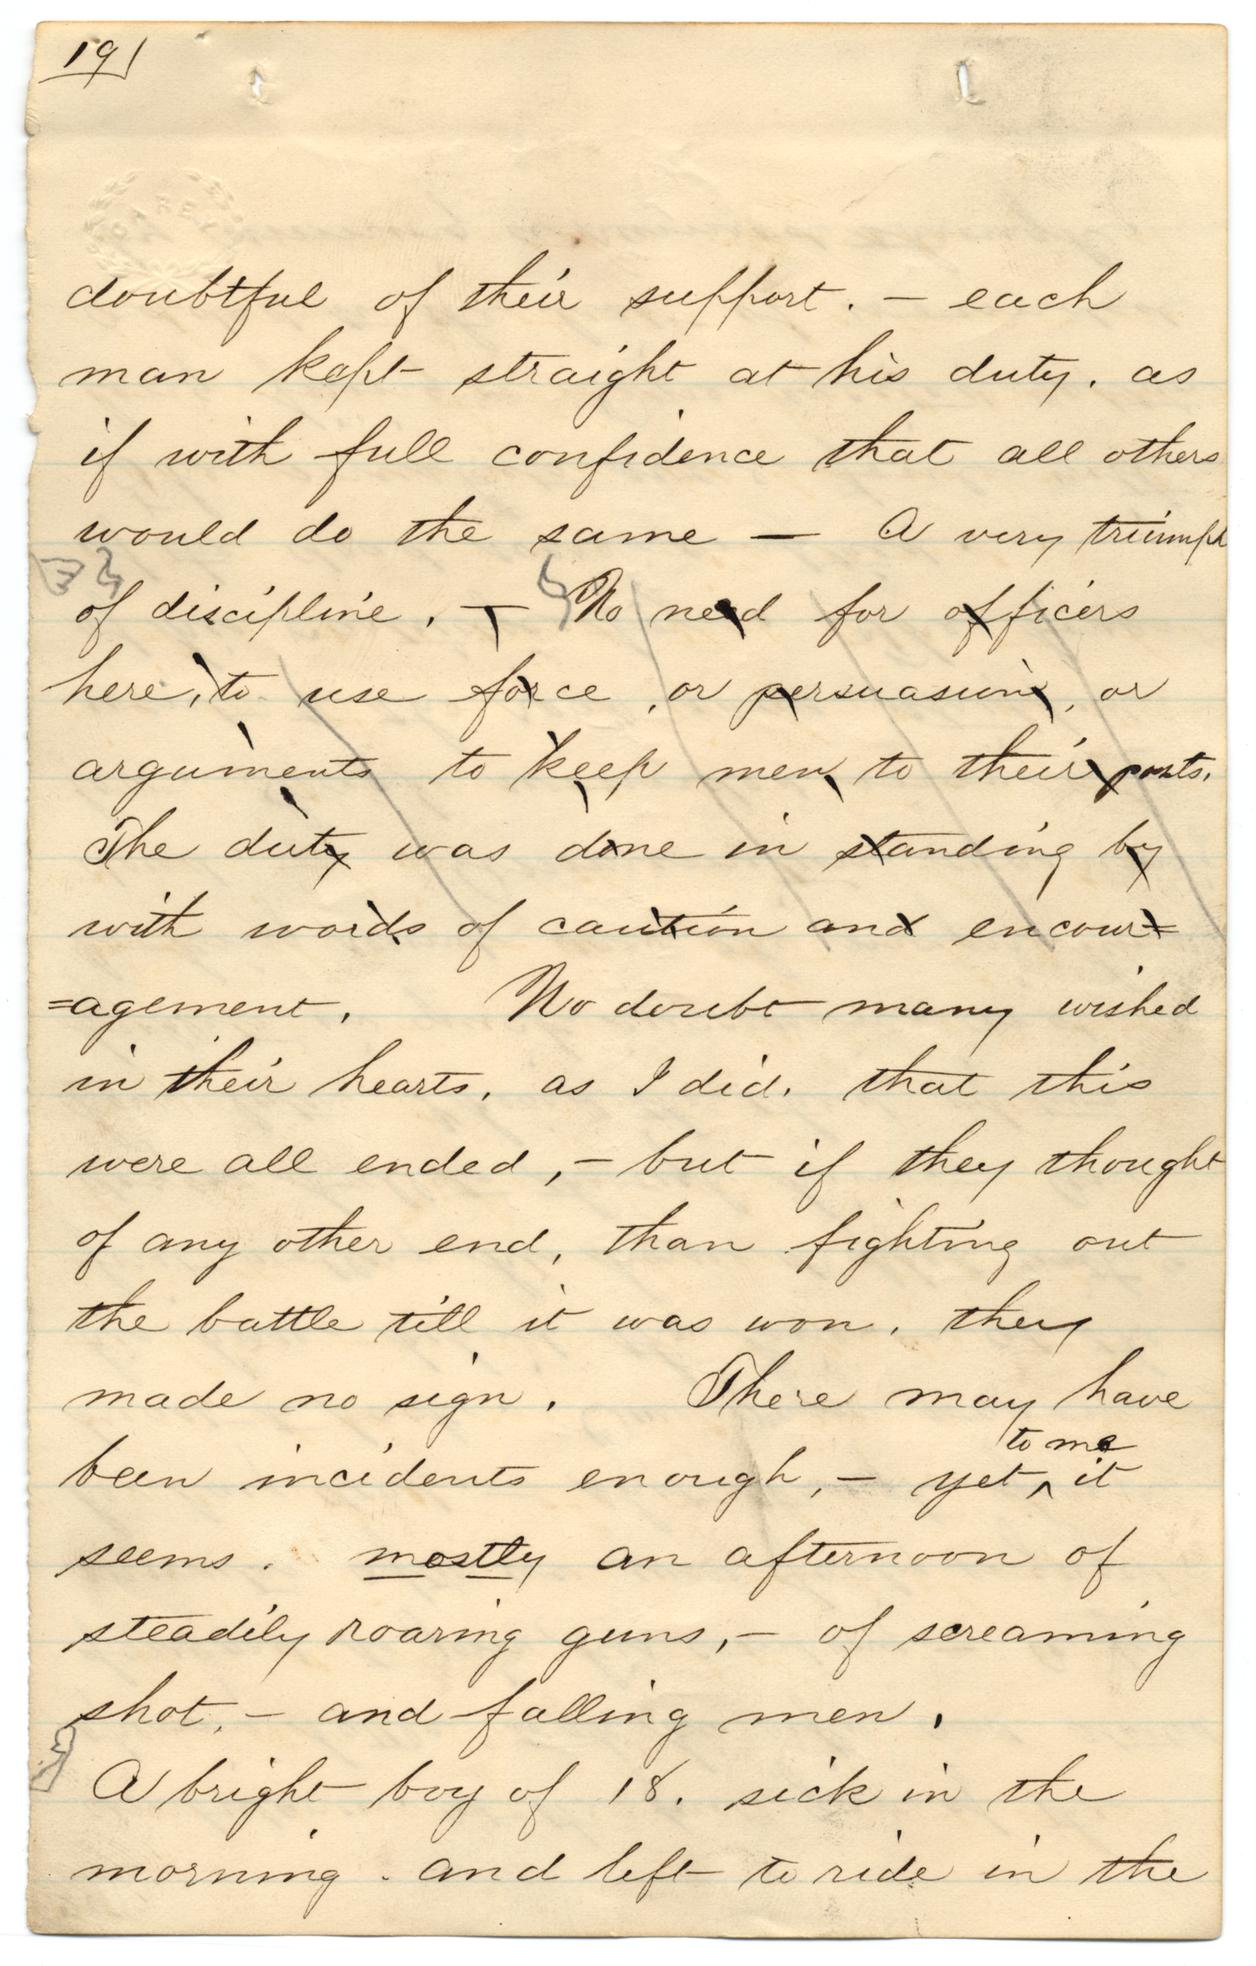 19
doubtful of their support. — each
man kept straight at his duty. as
if with full confidence that all others
would do the same — A very triumph
of discipline. — No need for officers
here, to use force, or persuasion, or
arguments to keep men to their posts.
The duty was done in standing by
with words of caution and encour=
=agement. No doubt many wished
in their hearts, as I did. that this
were all ended, — but if they thought
of any other end, than fighting out
the battle till it was won. they
made no sign. There may have
to me
been incidents enough, — yet, ^ it
seems. mostly an afternoon of
steadily roaring guns, — of screaming
shot, — and falling men.
A bright boy of 18. sick in the
morning. and left to ride in the